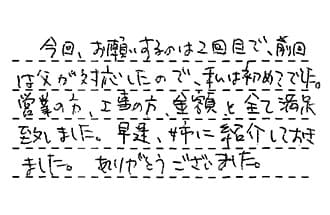 今回、お願いするのは2回目で、前回
は父が対応したので、私は初めてでした。
営業の方、工事の方、金額と全て満足
致しました。早速、姉に紹介しておき
ました。ありがとうございました。